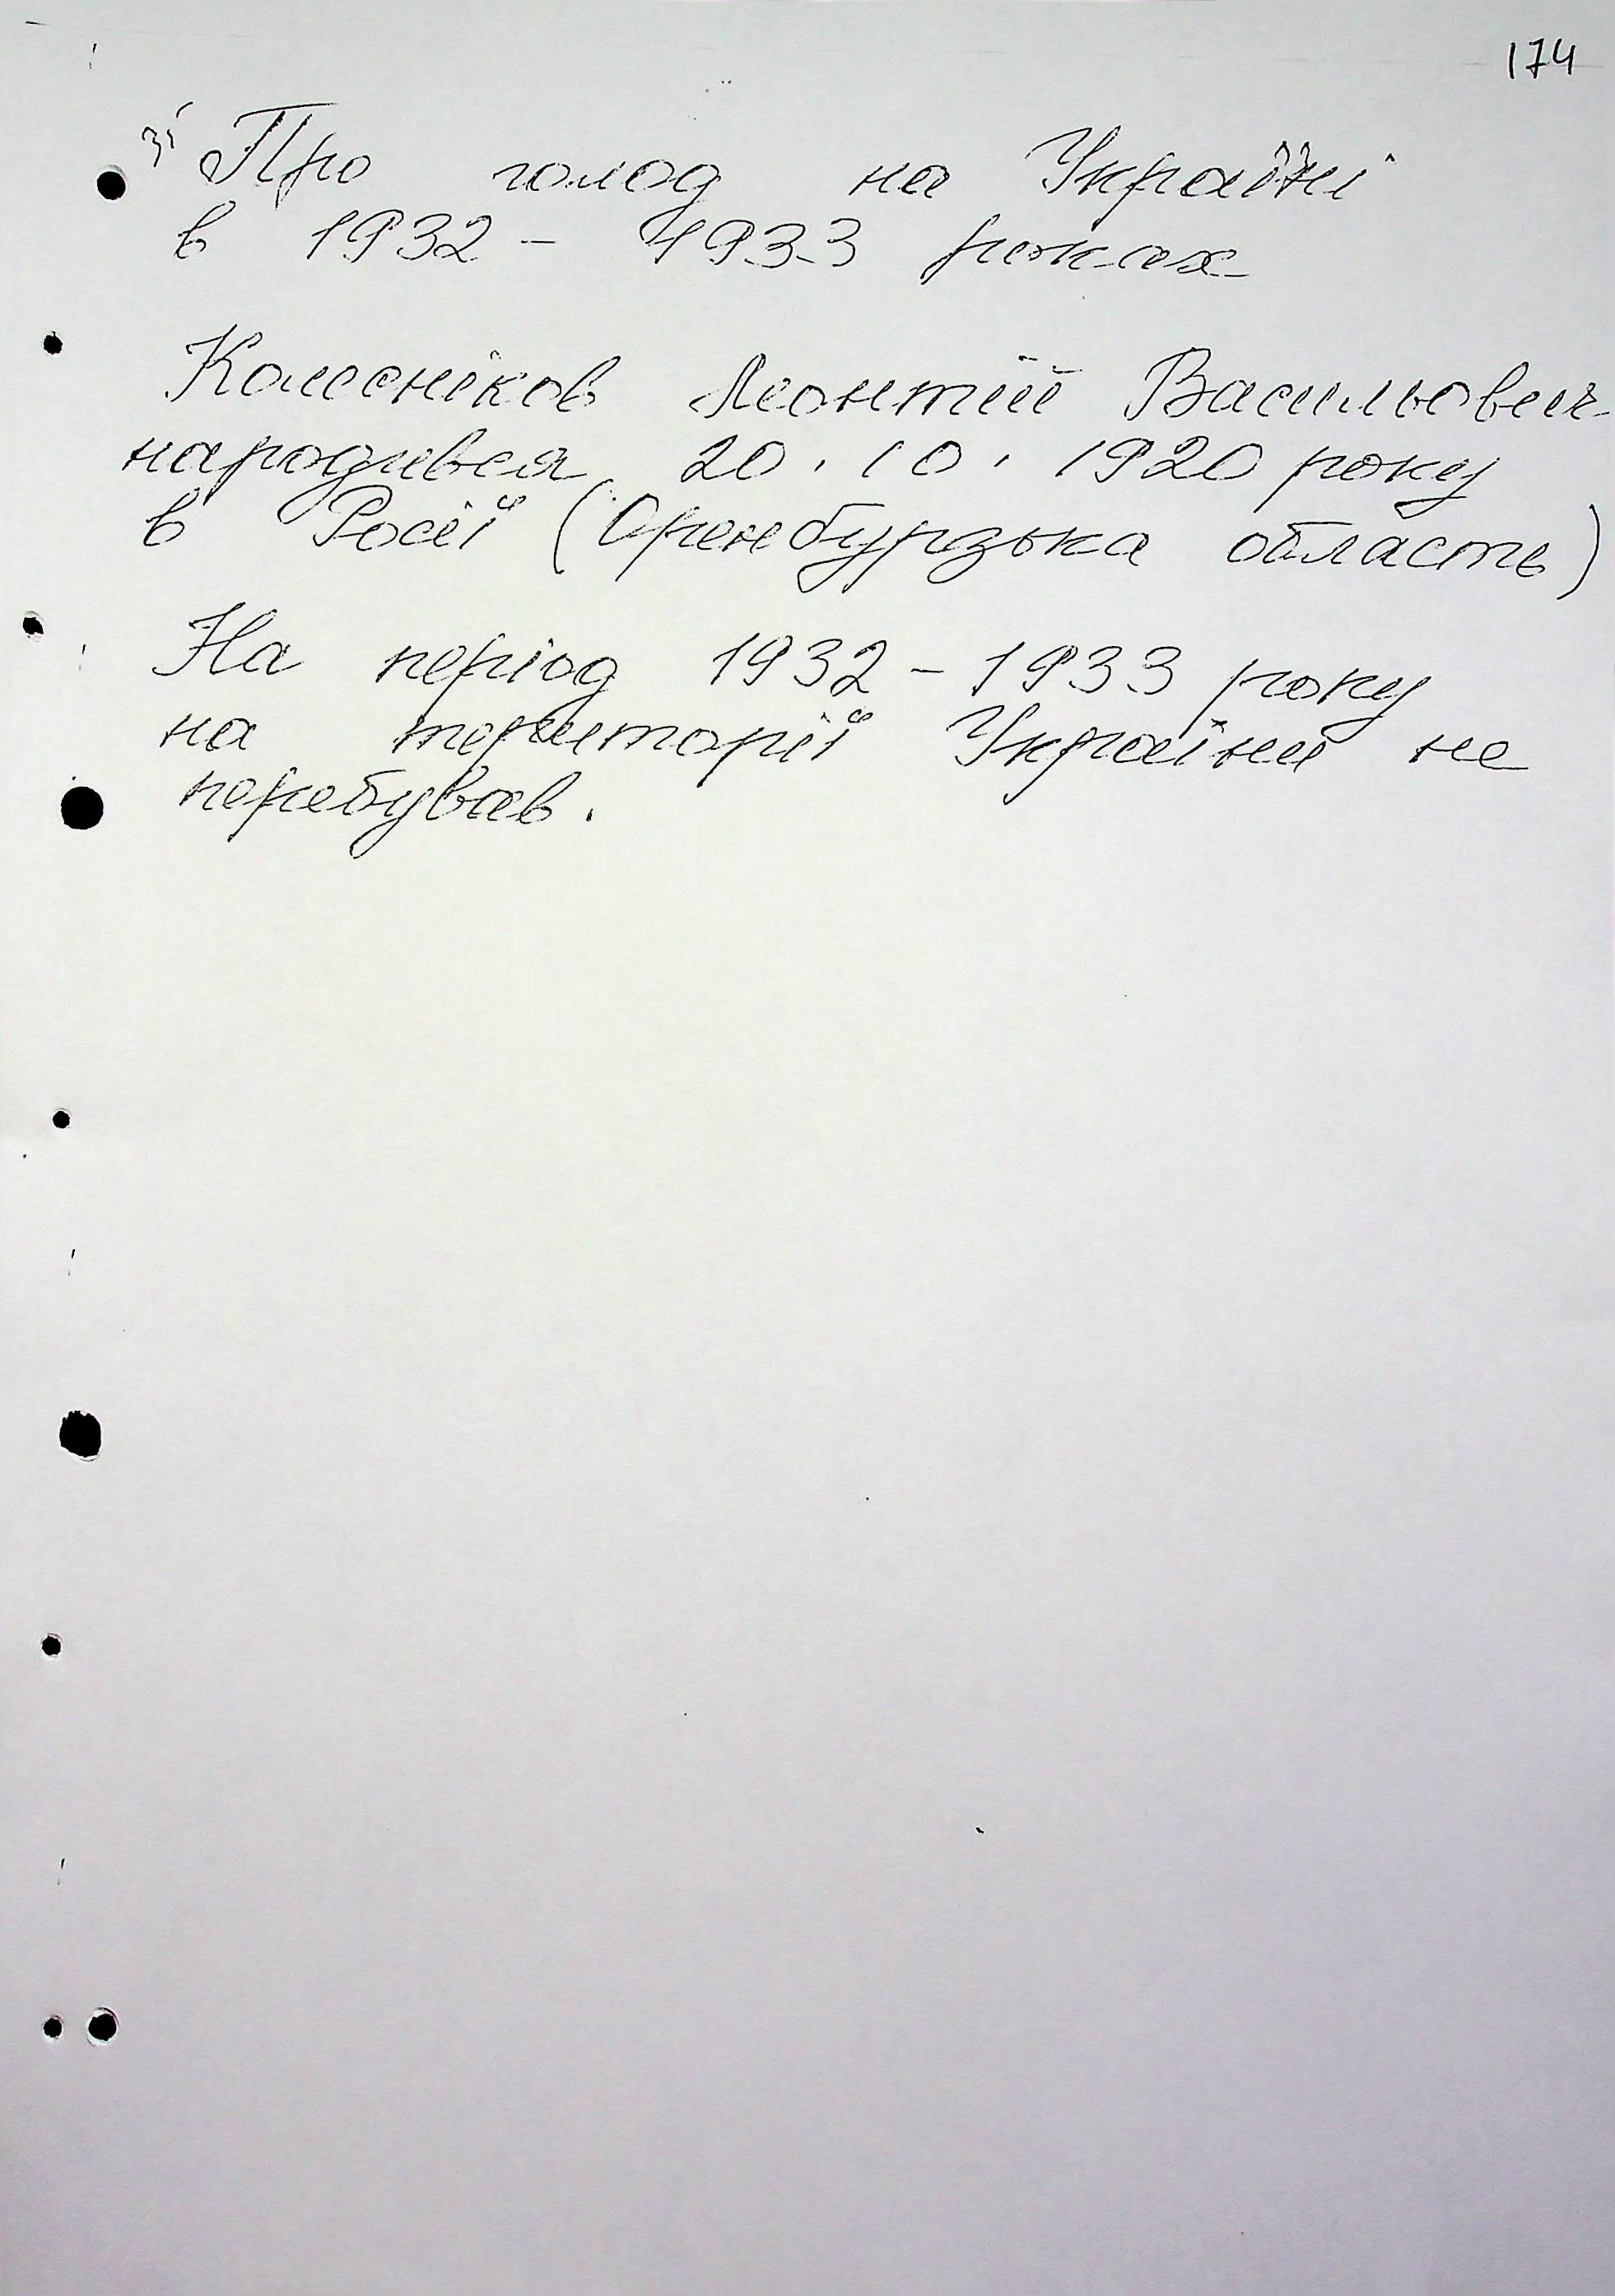 174
Про голод на Україні
в 1932 - 1933 роках
Колесніков Леонтій Васильович
народився 20.10.1920 року
в Росії (Оренбурзька область)
На період 1932 - 1933 року
на території України не
перебував.